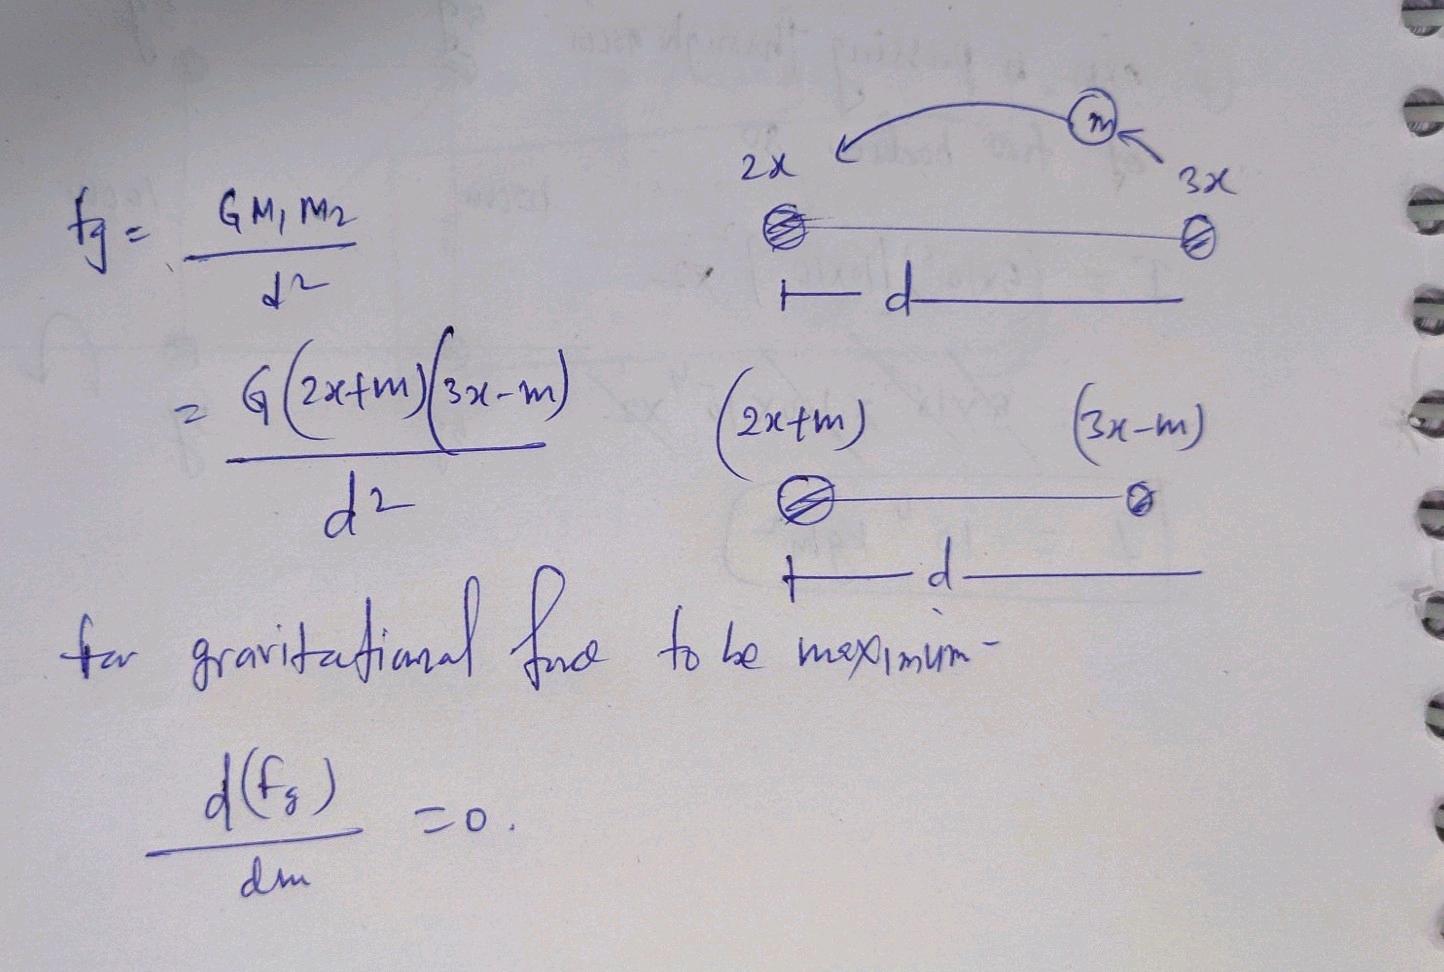 2x
m
3x
fg = GM1M2 / d2
d
= G(2x+m)(3x-m) / d2
(2x+m) (3x-m)
d
for gravitational force to be maximum-
d(fg) / dm = 0.